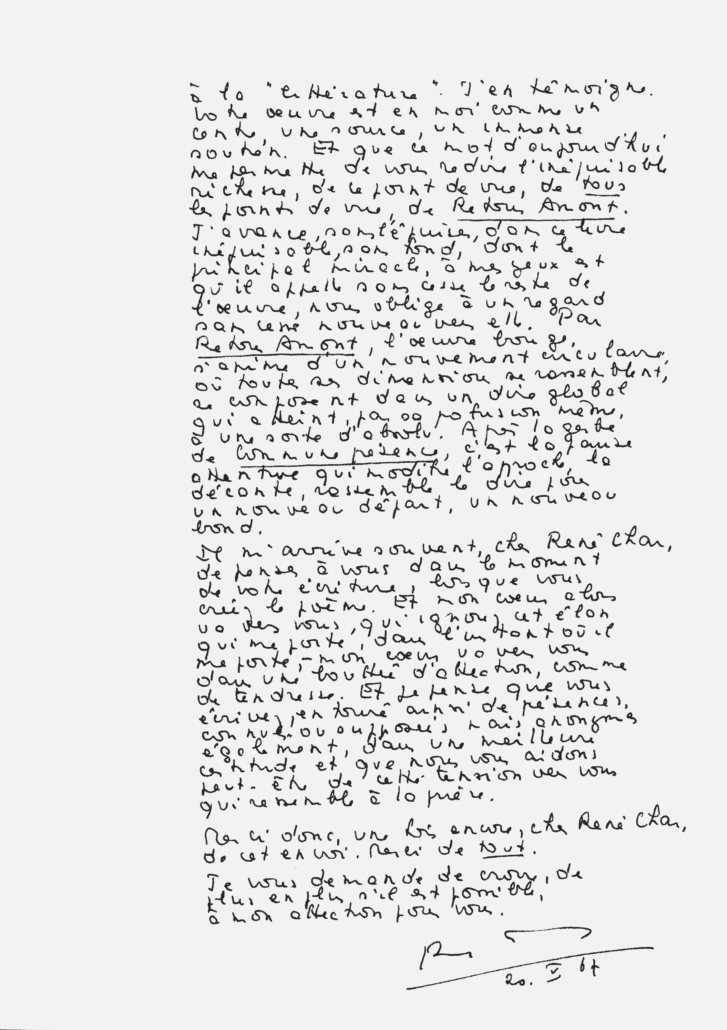 à la "littérature". J'en témoigne.
Votre œuvre est en moi comme un
centre, une source, un immense
soutien. Et que ce mot d'aujourd'hui
me permette de vous redire l'inépuisable
richesse, de ce point de vue, de tous
les points de vue, de Retour Amont.
J'avance, sans l'épuiser, dans ce livre
inépuisable, sans fond, dont le
principal miracle, à mes yeux est
qu'il appelle sans cesse le reste de
l'œuvre, nous oblige à un regard
sans cesse nouveau vers elle. Par
Retour Amont, l'œuvre bouge,
s'anime d'un mouvement circulaire,
où toutes ses dimensions se rassemblent,
se composent dans un dire global
qui atteint, par sa profusion même,
à une sorte d'absolu. Après la gerbe
de Commune présence, c'est la pause
attentive qui modifie l'approche, la
décante, rassemble le dire pour
un nouveau départ, un nouveau
bond.
Il m'arrive souvent, cher René Char,
de penser à vous dans le moment
de votre écriture, lorsque vous
créez le poème. Et mon cœur alors
va vers vous, qui ignorez cet élan
qui me porte, dans l'instant où il
me porte, – mon cœur va vers vous
dans une bouffée d'affection, comme
de tendresse. Et je pense que vous
écrivez, entouré ainsi de présences,
connues ou supposées mais anonymes
également, dans une meilleure
certitude et que nous vous aidons
peut-être de cette tension vers vous
qui ressemble à la prière.
Merci donc, une fois encore, cher René Char,
de cet envoi. Merci de tout.
Je vous demande de croire, de
plus en plus s'il est possible,
à mon affection pour vous.
20. V 67